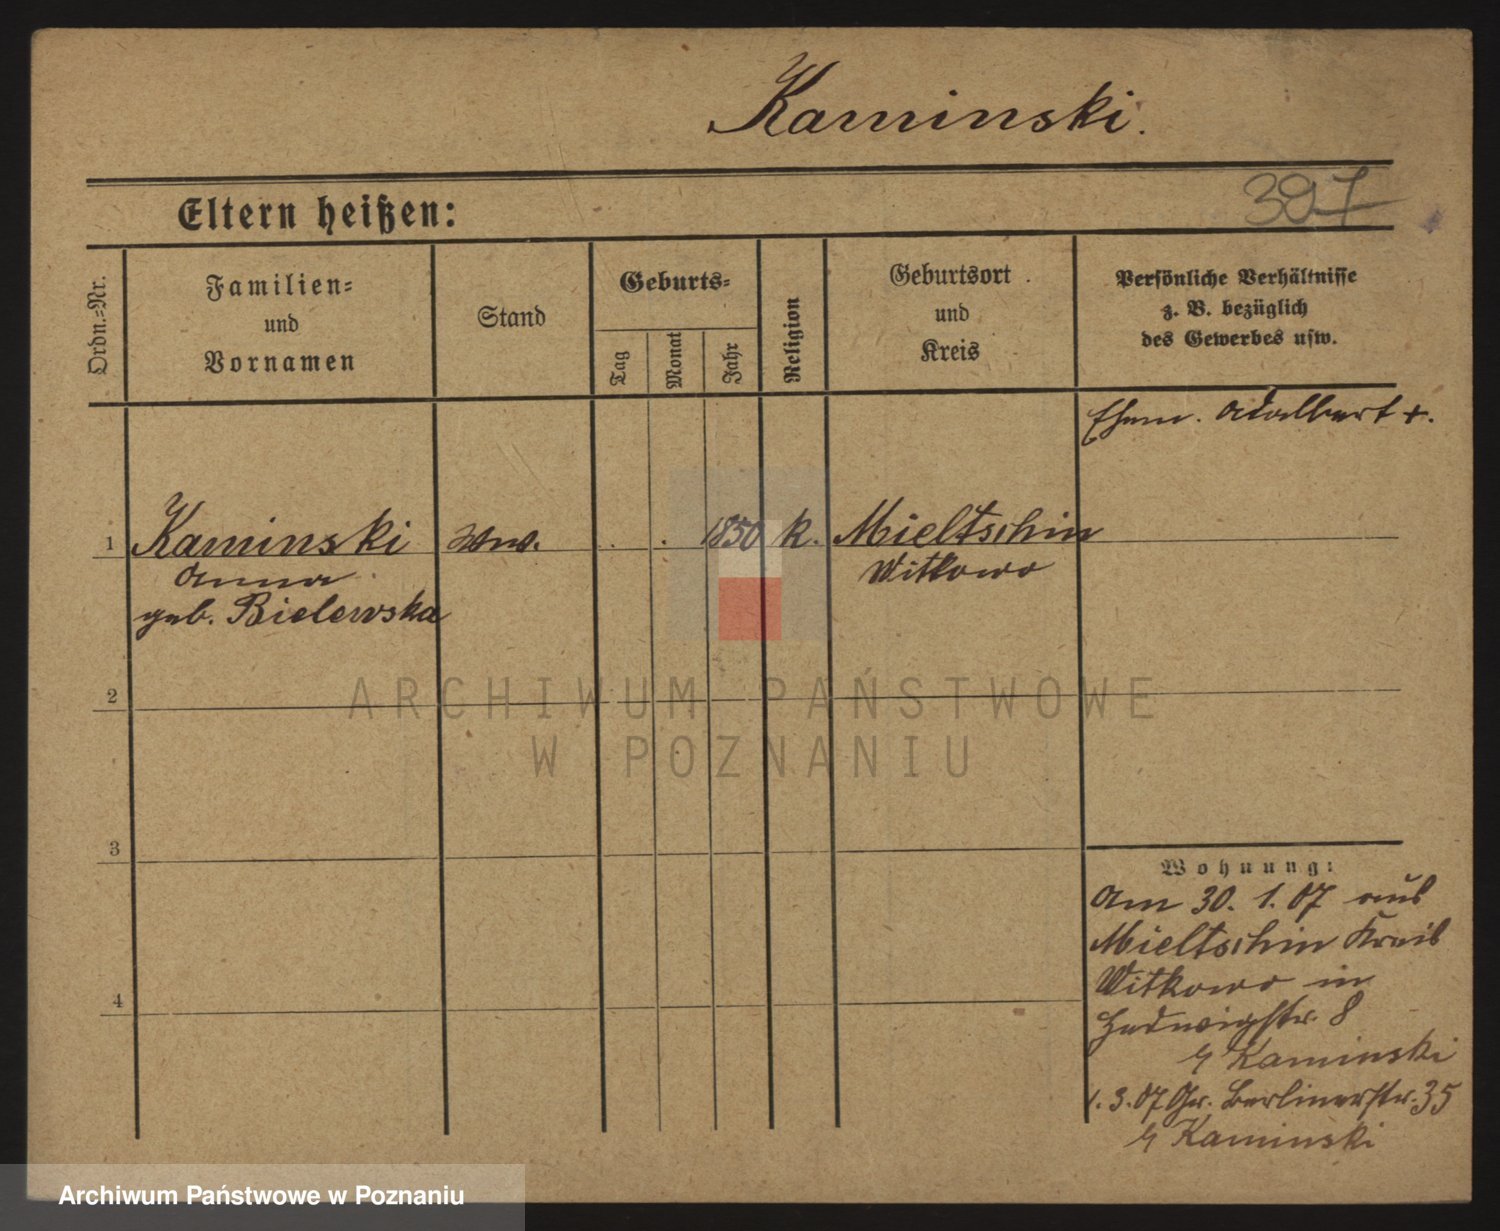 Kaminski.
397
Eltern heißen:
Ordn.=Nr.
Familien=
und
Vornamen
Stand
Geburts=
Tag
Monat
Jahr
Religion
Geburtsort
und
Kreis
Persönliche Verhältnisse
z. B. bezüglich
des Gewerbes usw.
Ehem. Adalbert +.
1
Kaminski
Anna
geb. Bielewska
Ww.
1850
k.
Mieltschin
Witkowo
2
3
4
Wohnung:
Am 30. 1. 07 aus
Mieltschin Kreis
Witkowo in
Hedwigstr. 8
Kaminski
1. 3. 07 Gr. Berlinerstr. 35
Kaminski
ARCHIWUM PAŃSTWOWE
W POZNANIU
Archiwum Państwowe w Poznaniu